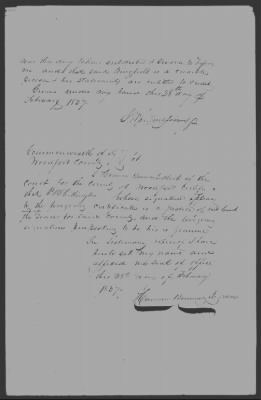 was this day taken subscribed & sworn to before
me and that said is a credible
person & his statements are entitled to credit.
Given under my hand this 28th day of
February 1837.
Commonwealth of Ky
Woodford County
I Herman Bowmar clerk of the
court for the county of Woodford certify
that whose signature appears
to the foregoing certificate is a Justice of
the peace for said County and the foregoing
signature purporting to be his is genuine
In Testimony whereof I have
hereto set my name and
affixed the seal of office
this 28th day of February
1837.
Herman Bowmar